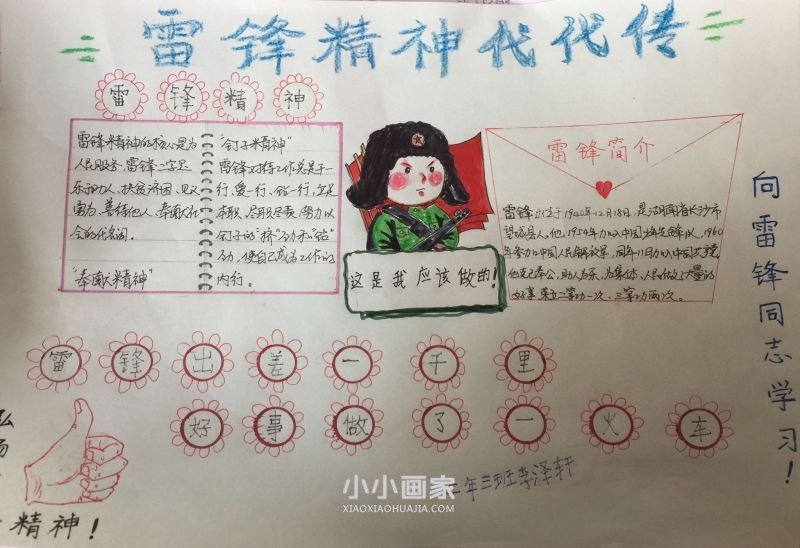 雷锋精神代代传
雷锋精神
雷锋精神的核心是为
人民服务,雷锋一定是
乐于助人,扶贫济困,见义
勇为、善待他人、奉献社
会的代名词。
"奉献精神"
"钉子精神"
雷锋对待工作总是干一
行、爱一行、钻一行,立足
本职、尽职尽责、努力以
钉子的"挤"劲和"钻"
劲,使自己成为工作的
内行。
这是我应该做的!
雷锋简介
雷锋出生于1940年12月18日,是湖南省长沙市
望城县人,他1954年加入中国少年先锋队,1960
年参加中国人民解放军,同年11月加入中国共产党。
他克己奉公,助人为乐,为集体、人民做了大量的
好事,荣立二等功一次、三等功两次。
向雷锋同志学习!
雷锋出差一千里
好事做了一火车
弘
扬
精神!
二年三班李泽轩
小小画家
XIAOXIAOHUAJIA.COM